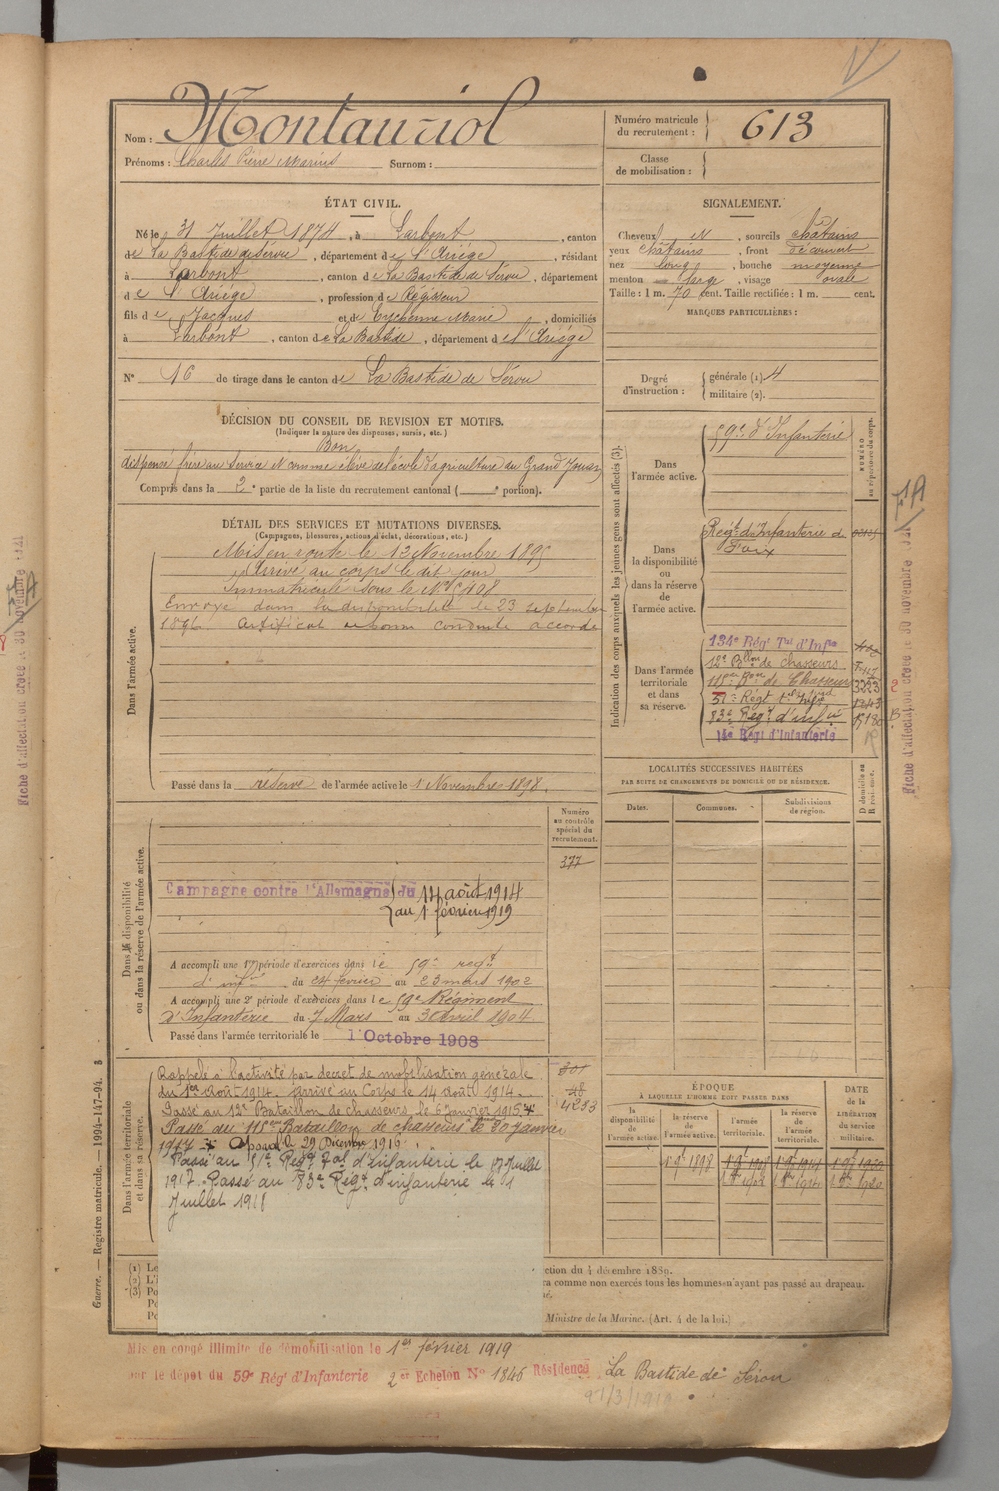 Nom : Montauriol
Prénoms : Charles Pierre Marius Surnom :
Numéro matricule du recrutement : 613
Classe de mobilisation :
ÉTAT CIVIL.
Né le 31 Juillet 1874, à Larbont, canton
de La Bastide de Sérou, département de l'Ariège, résidant
à Larbont, canton de La Bastide de Sérou, département
de l'Ariège, profession de Régisseur
fils de Jacques et de Eycherne Marie, domiciliés
à Larbont, canton de La Bastide, département de l'Ariège
N° 16 de tirage dans le canton de La Bastide de Sérou
SIGNALEMENT.
Cheveux N, sourcils châtains
yeux châtains, front découvert
nez long, bouche moyenne
menton large, visage ovale
Taille : 1 m. 70 cent. Taille rectifiée : 1 m. cent.
MARQUES PARTICULIÈRES :
Degré d'instruction : générale (1). 4
militaire (2).
DÉCISION DU CONSEIL DE REVISION ET MOTIFS.
(Indiquer la nature des dispenses, sursis, etc.)
Bon
dispensé frère au service et comme élève de l'école d'agriculture du Grand Jouan
Compris dans la 2e partie de la liste du recrutement cantonal ( e portion).
DÉTAIL DES SERVICES ET MUTATIONS DIVERSES.
(Campagnes, blessures, actions d'éclat, décorations, etc.)
Dans l'armée active.
Mis en route le 12 Novembre 1895
Arrivé au corps le dit jour
Immatriculé sous le N°
Envoyé dans la disponibilité le 23 septembre
1896. Certificat de bonne conduite accordé
Passé dans la réserve de l'armée active le 1 Novembre 1898.
Indication des corps auxquels les jeunes gens sont affectés (3).
NUMÉRO au répertoire du corps.
Dans l'armée active.
59e d'Infanterie
Dans la disponibilité ou dans la réserve de l'armée active.
Régt d'Infanterie de Foix
Dans l'armée territoriale et dans sa réserve.
134e Rég' Tal d'Infie
12e Bllon de chasseurs
115eme Bon de Chasseurs 3223
51e Régt tal d'Infie 1243
83e Régt d'infie 15180
14e Régt d'Infanterie
LOCALITÉS SUCCESSIVES HABITÉES
PAR SUITE DE CHANGEMENTS DE DOMICILE OU DE RÉSIDENCE.
Dates. Communes. Subdivisions de région. D domicile ou R résidence.
Dans la disponibilité ou dans la réserve de l'armée active.
Numéro au contrôle spécial du recrutement.
377
Campagne contre l'Allemagne du 14 août 1914
au 1 février 1919
A accompli une 1re période d'exercices dans le 59e regt
d'infie du 24 février au 23 mars 1902
A accompli une 2e période d'exercices dans le 59e Régiment
d'Infanterie du 7 Mars au 3 Avril 1904
Passé dans l'armée territoriale le 1 Octobre 1908
Dans l'armée territoriale et dans sa réserve.
Rappelé à l'activité par decret de mobilisation generale
du 1er Août 1914. Arrivé au Corps le 14 août 1914.
Passé au 12e Bataillon de chasseurs, le 6 janvier 1915
Passé au 115eme Bataillon de chasseurs le 20 janvier
1917 29 Décembre 1916
Passé au 51e Régt Tal d'infanterie le 17 Juillet
1917. Passé au 83e Régt d'infanterie le 1
Juillet 1918
301
48
4233
ÉPOQUE
A LAQUELLE L'HOMME DOIT PASSER DANS
la disponibilité de l'armée active.
la réserve de l'armée active.
l'armée territoriale.
la réserve de l'armée territoriale.
DATE de la LIBÉRATION du service militaire.
1 9e 1898
(1) Le
(2) L'i
(3) Po
Po
Po
ction du 4 décembre 1889.
ra comme non exercés tous les hommes n'ayant pas passé au drapeau.
né.
Ministre de la Marine. (Art. 4 de la loi.)
Mis en congé illimité de démobilisation le 1er février 1919
par le dépôt du 59e Rég' d'Infanterie 2er Echelon N° 1846 Résidence La Bastide de Sérou
Guerre. — Registre matricule. — 1994-147-94.
Fiche d'affectation créée le 30 novembre 1921
FA
Fiche d'affectation créée le 30 novembre 1921